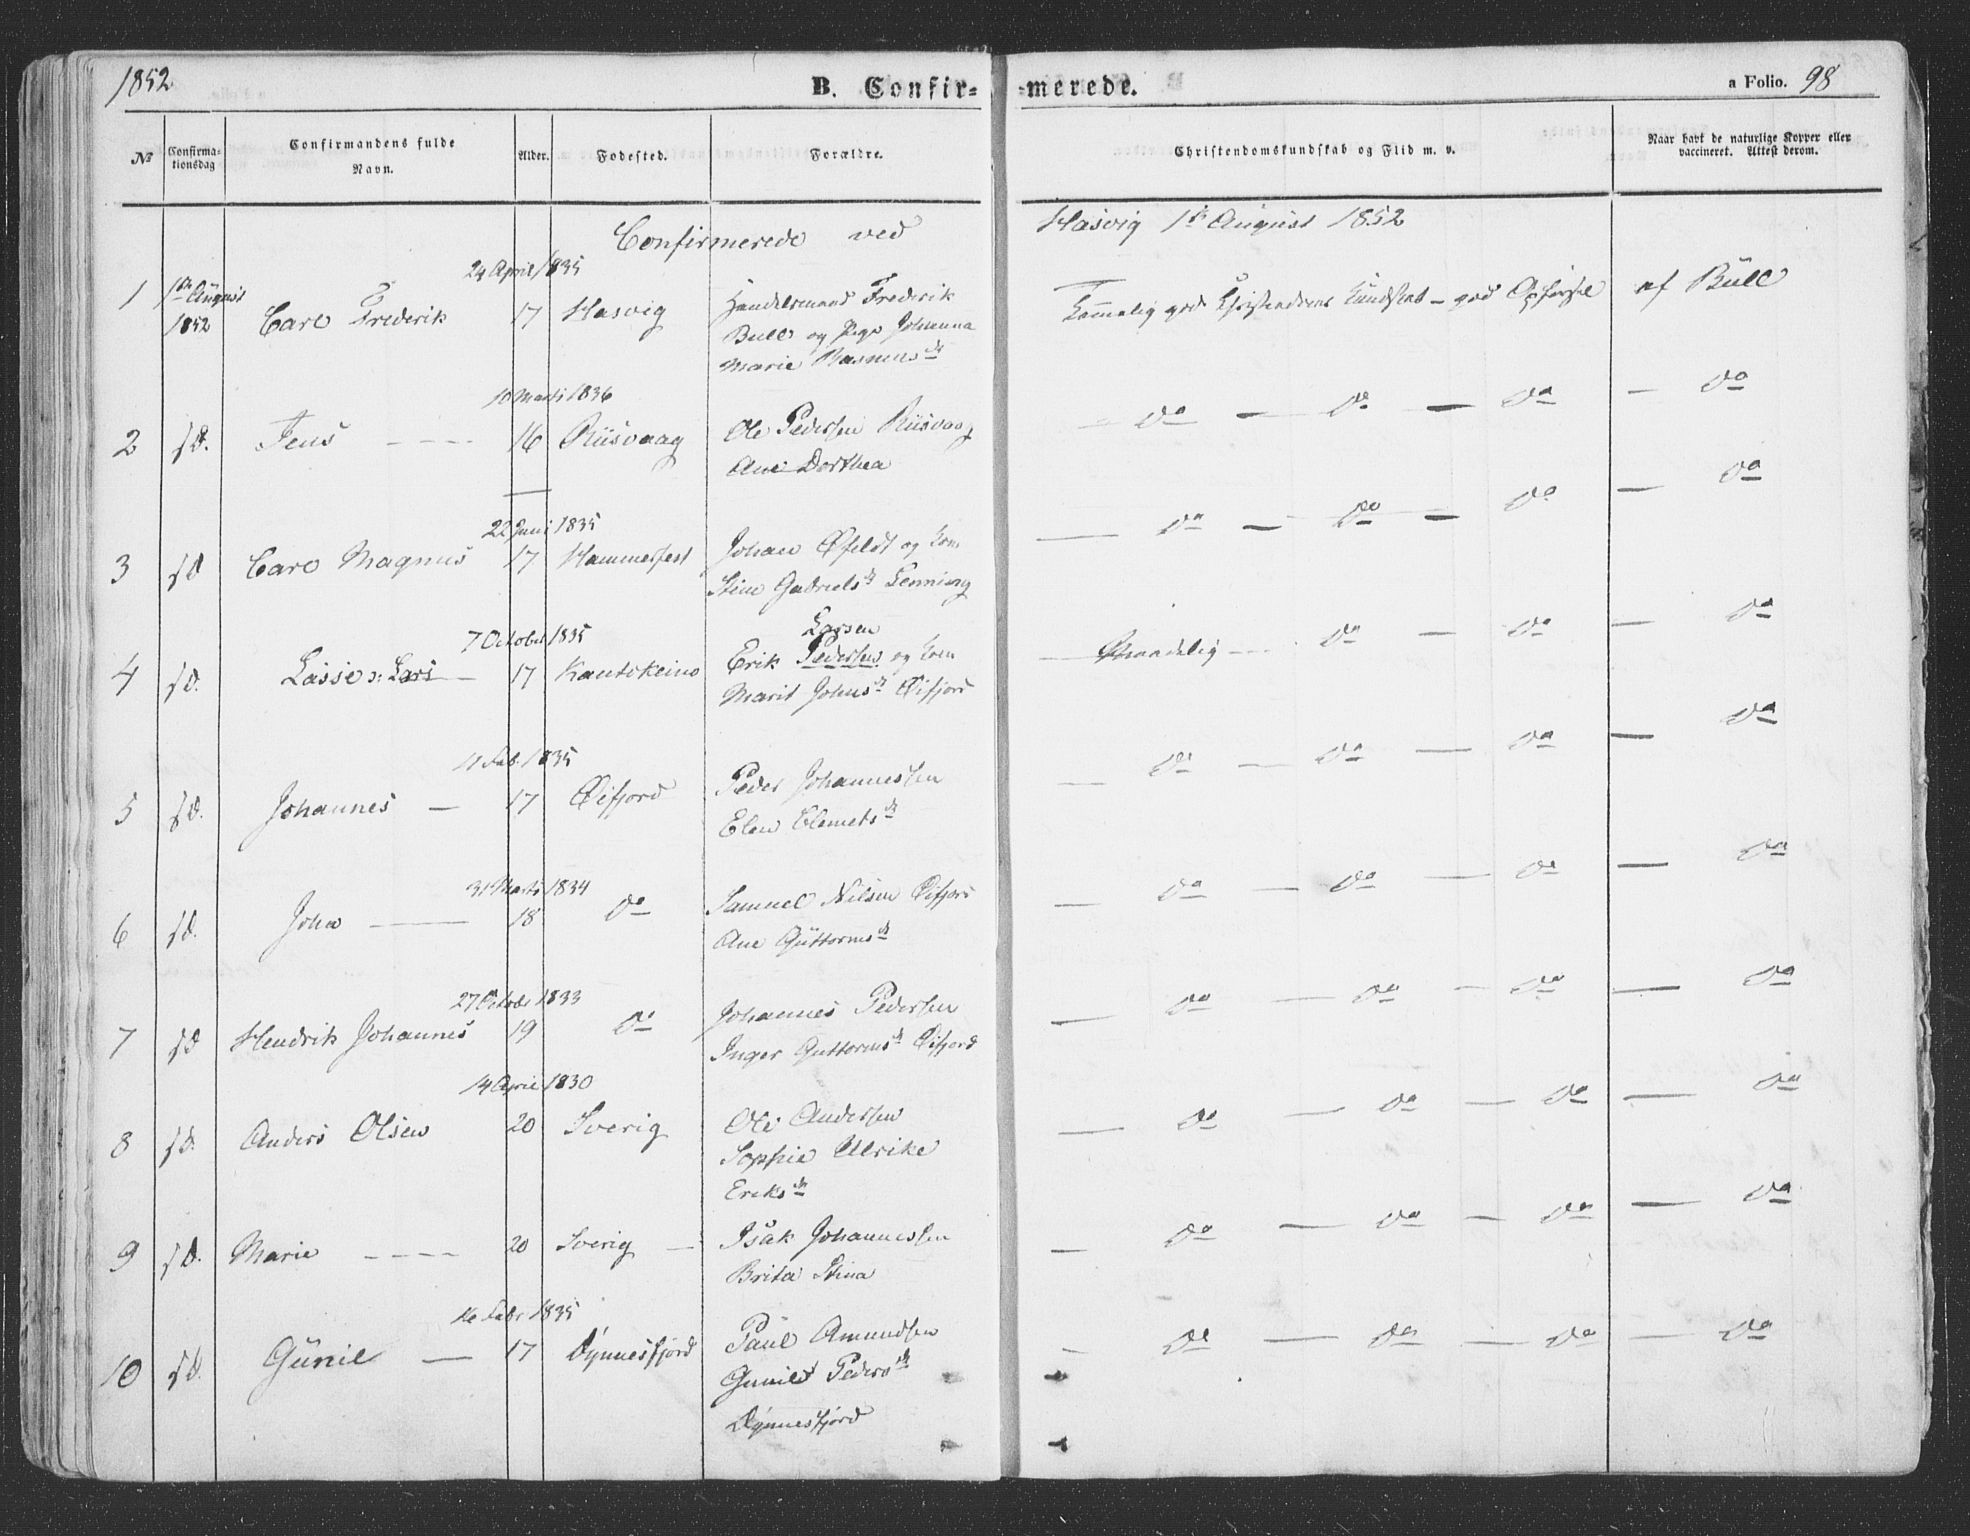 1852
B. Confir- -merede.
a Folio. 98
No Confirmationsdag Confirmandens fulde Navn. Alder. Fodested. Forældre. Christendomskundskab og Flid m. v. Naar havt de naturlige Kopper eller vaccineret. Attest derom.
Confirmerede ved Hasvig 1ste August 1852
24 April 1835
1 1ste August Carl Frederik 17 Hasvig Handelsmand Frederik god Christendoms Kundskab - god Opførsel af Bull
1852 Bull og Johanna
Marie Rasmusdt
10 Marts 1836
2 sd. Jens 16 Riisvaag Ole Pedersen Riisvaag Do - Do - Do - Do
Ane Dorthea
22 Juni 1835
3 sd Carl Magnus 17 Hammerfest Johan Øfeldt og Kone Do - Do - Do - Do
Stine Gabrielsdt Lenning
7 October 1835 Larsen
4 sd. Lasse o: Lars 17 Kautokeino Erik Pedersen og Kone Maadelig - Do - Do - Do
Marit Johnsdt Øifjord
11 Feb. 1835
5 sd. Johannes 17 Øifjord Peder Johannessen Do - Do - Do - Do
Elen Clemetsdt
31 Marts 1834
6 sd. John 18 Do Samuel Nilsen Øifjord Do - Do - Do - Do
Ane Guttormsdt
27 October 1833
7 sd Hendrik Johannes 19 Do Johannes Pedersen Do - Do - Do - Do
Inger Guttormsdt Øifjord
14 April 1830
8 sd. Anders Olsen 20 Sverig Ole Andersen Do - Do - Do - Do
Sophia Ulrike
Eriksdt
9 sd. Marie 20 Sverig Isak Johannessen Do - Do - Do - Do
Brita Stina
16 Febr 1835
10 sd. Gunil 17 Dynnesfjord Paul Amundsen Do - Do - Do - Do
Gunild Pedersdt
Dynnesfjord